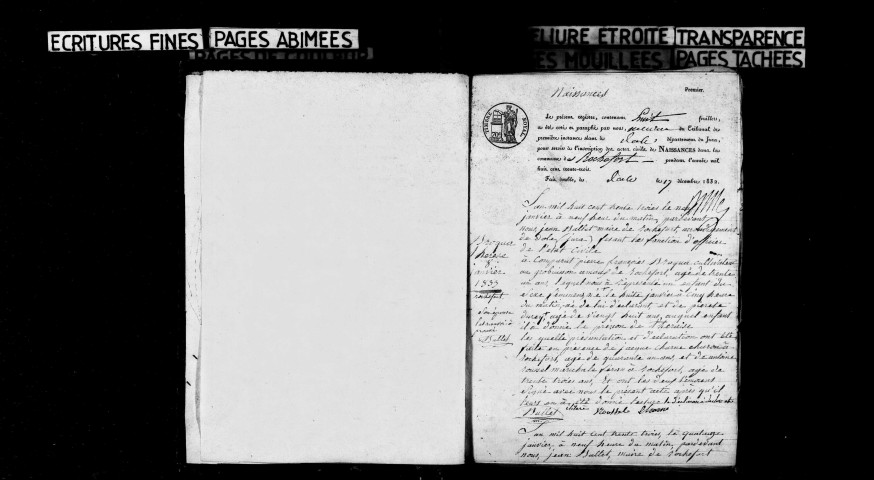 ECRITURES FINES
PAGES ABIMEES
RELIURE ETROITE
TRANSPARENCE
PAGES MOUILLEES
PAGES TACHEES
Naissances
Premier.
Le présent registre, contenant huit feuillets,
a été coté et paraphé par nous, du Tribunal de
première instance séant à Dole, département du Jura,
pour servir à l'inscription des actes civils de NAISSANCES dans la
commune de Rochefort pendant l'année mil
huit cent trente-trois.
Fait double, à Dole le 17 décembre 1832.
TIMBRE ROYAL
L'an mil huit cent trente trois le neuf
janvier à neuf heure du matin, pardevant
nous jean Bullet maire de rochefort, arrondissement
de Dole (jura) fesant les fonction d'officier
de l'état civile
à Comparut pierre françois Broque cultivateur
 rochefort, agé de trente
un ans, lequel nous à représenté un enfant du
sexe féminin né le huite janvier à cinq heure
du matin, de lui déclarant et de
agé de vingt huit ans, auquel enfant
il a donné le prenom de
les quelle présentation et déclaration ont été
faite en presence de jacque
rochefort, agé de quarante ans, et de antoine
rousset marechale à rochefort, agé de
trente trois ans, et ont les deux temoins
signé avec nous le présent acte après qu'il
leurs en à été donné lecture
Bullet
Broque
8
janvier
1833
rochefort
Bullet
L'an mil huit cent trente trois, le quatorze
janvier à neuf heure du matin, pardevant
nous, jean Bullet, maire de rochefort